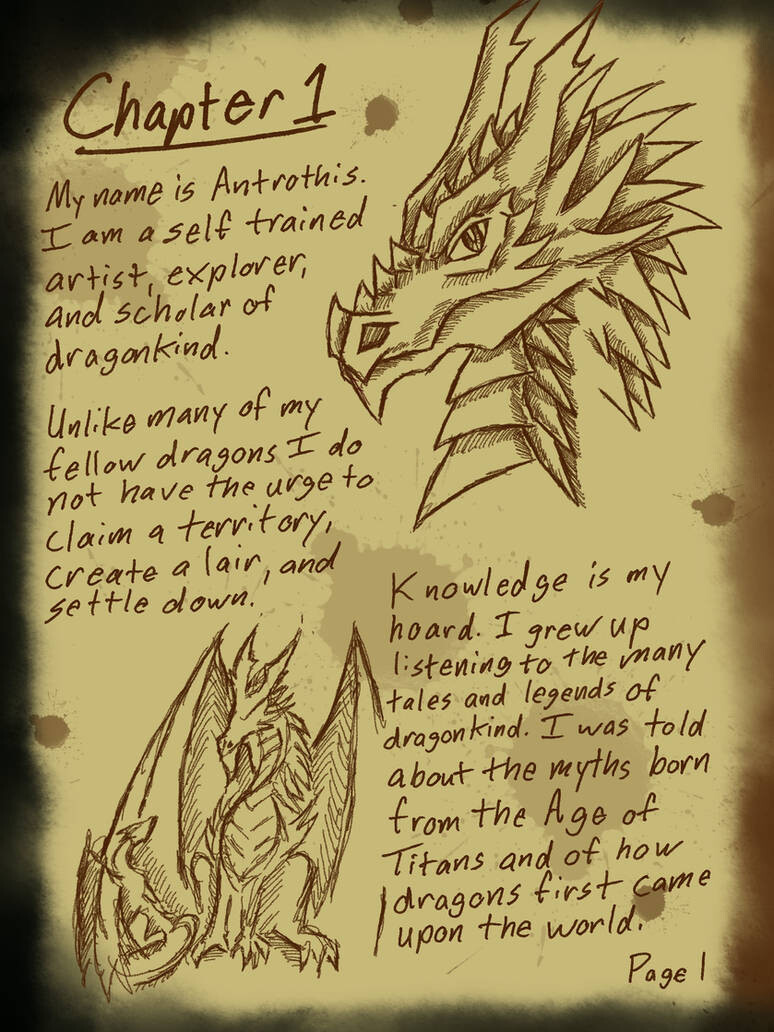 Chapter 1
My name is Antrothis.
I am a self trained
artist, explorer,
and scholar of
dragonkind.
Unlike many of my
fellow dragons I do
not have the urge to
claim a territory,
create a lair, and
settle down.
Knowledge is my
hoard. I grew up
listening to the many
tales and legends of
dragonkind. I was told
about the myths born
from the Age of
Titans and of how
dragons first came
upon the world.
Page 1